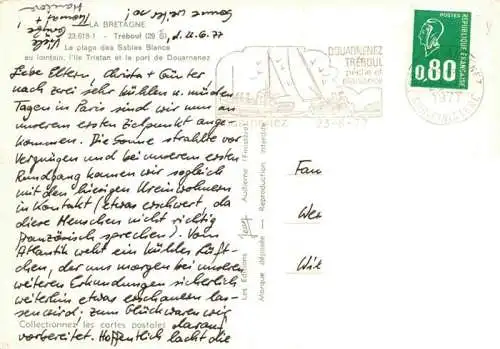 Sonne
LA BRETAGNE
d. 22.6.77
22.619-1 - Tréboul (29
La plage des Sables Blancs
au lointain, l'Ile Tristan et le port de Douarnenez
Liebe Eltern, Christa + Günter
nach zwei sehr kühlen u. müden
Tagen in Paris sind wir nun an
unserem ersten Zielpunkt ange-
kommen. Die Sonne strahlte vor
Vergnügen und bei unserem ersten
Rundgang kamen wir sogleich
mit den hiesigen Einwohnern
in Kontakt (etwas erschwert, da
diese Menschen nicht richtig
französisch sprechen). Vom
Atlantik weht ein kühles Lüft-
chen, der uns morgen bei unseren
weiteren Erkundungen sicherlich
weiterhin etwas erschauern las-
sen wird. Zum Glück waren wir
darauf
Collectionnez les cartes postales
vorbereitet. Hoffentlich lacht die
Les Editions Jos Audierne (Finistère)
Marque déposée Reproduction interdite
DOUARNENEZ
TRÉBOUL
pêche et
plaisance
23-6-77
POSTES
0,80
REPUBLIQUE FRANÇAISE
1977
FINISTERE
Fam
Wer
Wil